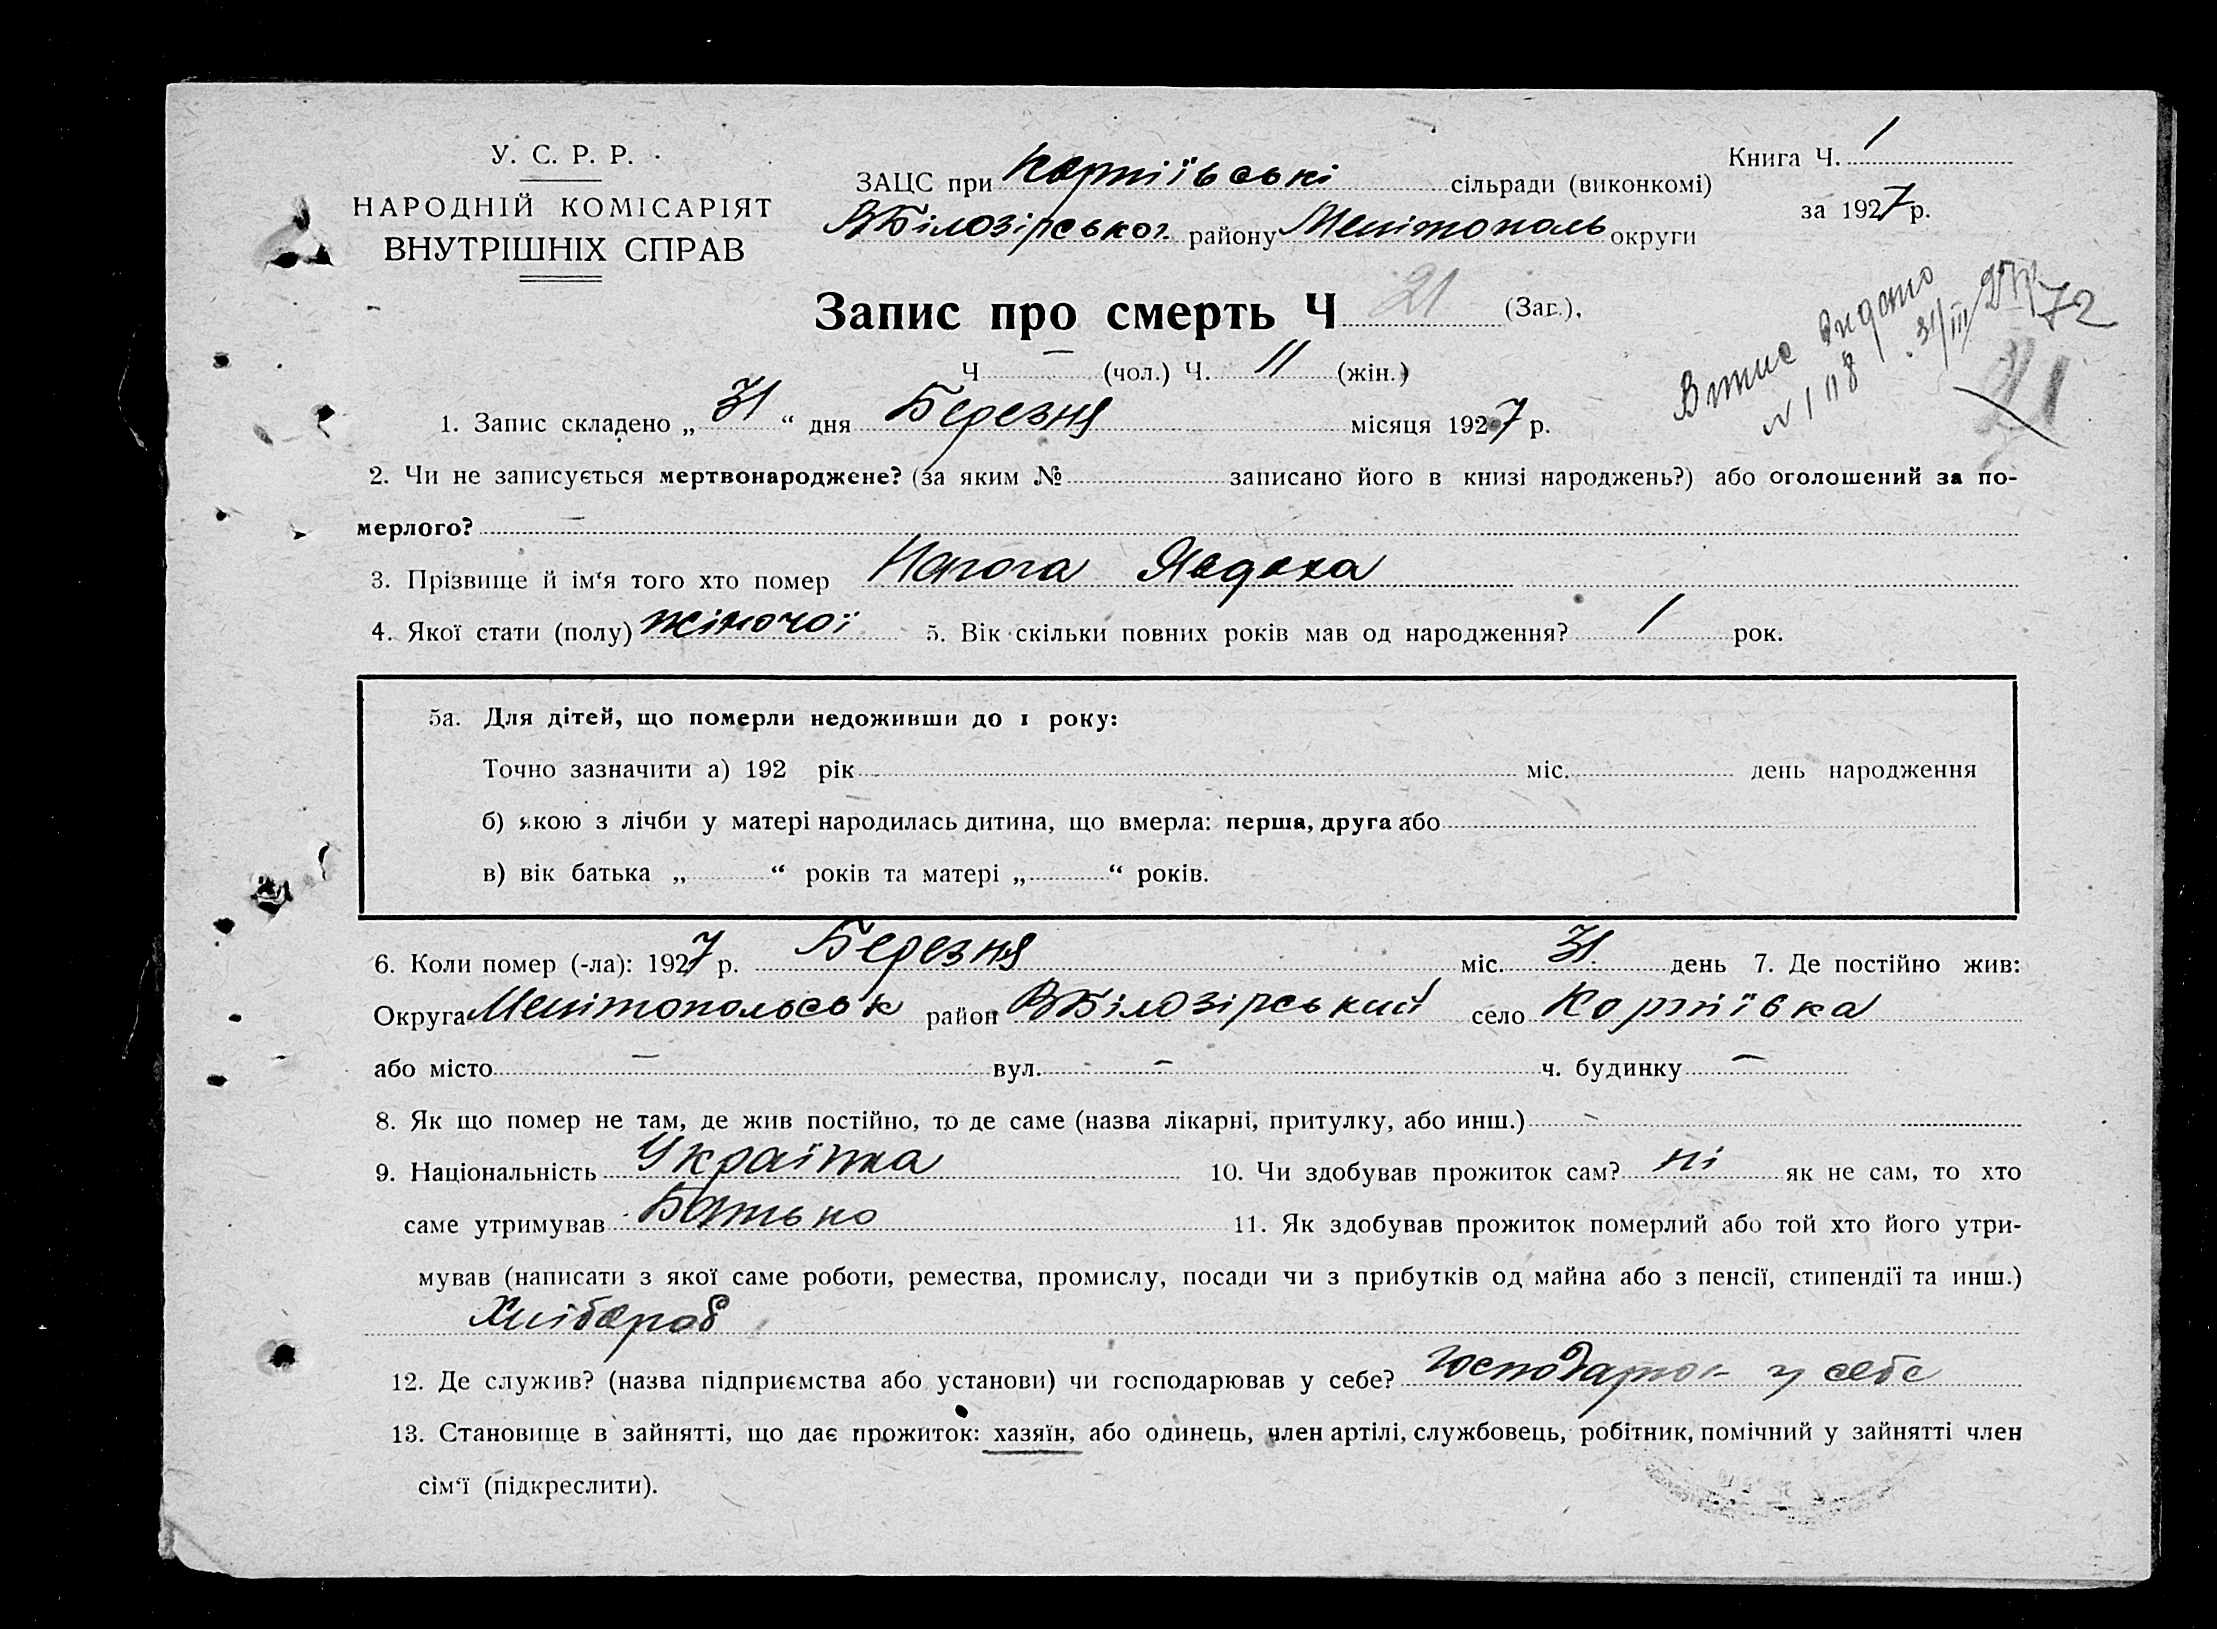 У. С. Р. Р.
НАРОДНІЙ КОМІСАРІЯТ
ВНУТРІШНІХ СПРАВ
Книга Ч. 1
за 1927 р.
ЗАЦС при сільради (виконкомі)
ВБілозірськог. району Мелітополь округи
Запис про смерть Ч 21 (Заг.).
Ч — (чол.) Ч. 11 (жін.)
Витис видано
31/III 27
72
21
1. Запис складено „ 31 “ дня Березня місяця 1927 р.
2. Чи не записується мертвонароджене? (за яким № записано його в книзі народжень?) або оголошений за по-
мерлого? —
3. Прізвище й ім‘я того хто помер Явдоха
4. Якої стати (полу) жіночої 5. Вік скільки повних років мав од народження? 1 рок.
5а. Для дітей, що померли недоживши до 1 року:
Точно зазначити а) 192 рік міс. день народження
б) якою з лічби у матері народилась дитина, що вмерла: перша, друга або
в) вік батька „ “ років та матері „ “ років.
6. Коли помер (-ла): 1927 р. Березня міс. 31 день 7. Де постійно жив:
Округа Мелітопольськ район ВБілозірський село Картіївка
або місто — вул. — ч. будинку —
8. Як що помер не там, де жив постійно, то де саме (назва лікарні, притулку, або инш.) –
9. Національність Українка 10. Чи здобував прожиток сам? ні як не сам, то хто
саме утримував Батько 11. Як здобував прожиток померлий або той хто його утри-
мував (написати з якої саме роботи, ремества, промислу, посади чи з прибутків од майна або з пенсії, стипендії та инш.)
Хлібороб
12. Де служив? (назва підприємства або установи) чи господарював у себе? у себе
13. Становище в зайнятті, що дає прожиток: хазяїн, або одинець, член артілі, службовець, робітник, помічний у зайнятті член
сім‘ї (підкреслити).